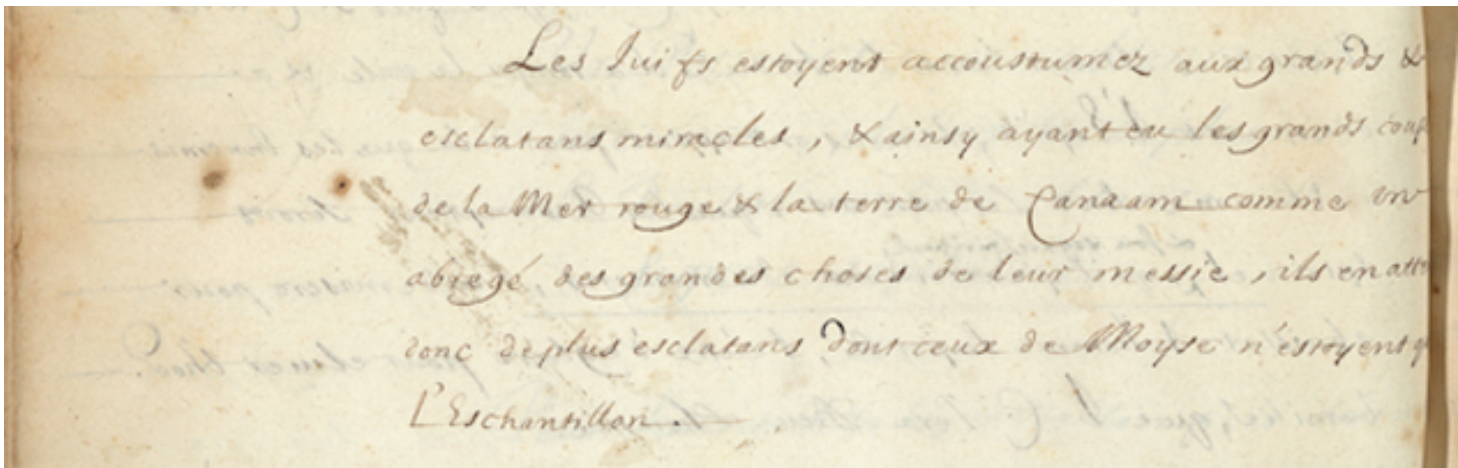 Les Juifs estoyent accoustumez aux grands &
esclatans miracles, & ainsy ayant eu les grands coup
de la Mer rouge & la terre de Canaam comme un
abregé des grandes choses de leur messie, ils en atte
donc de plus esclatans dont ceux de Moyse n'estoyent q
L'Eschantillon.